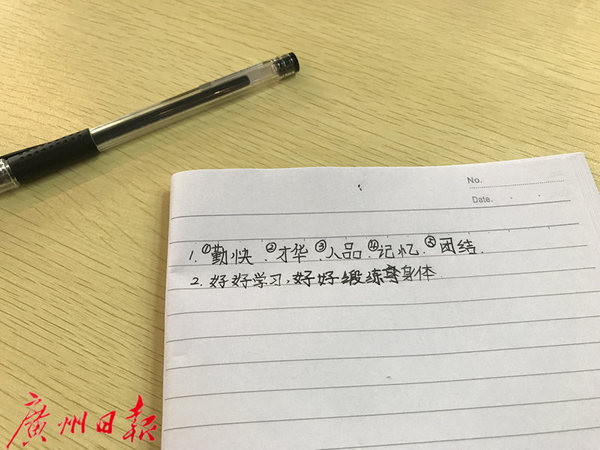 No.
Date.
1.①勤快 ②才华 ③人品 ④记忆 ⑤团结.
2.好好学习,好好缎练身体
廣州日報